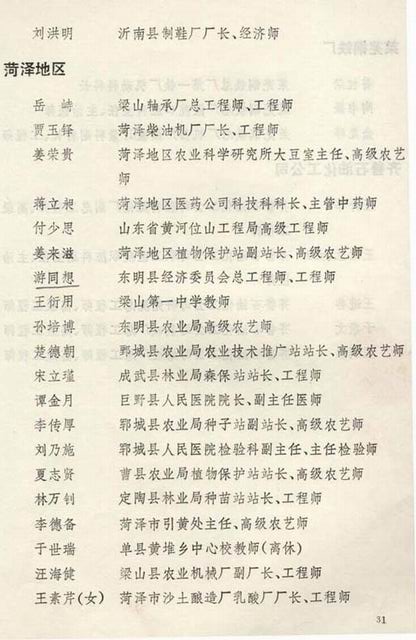 刘洪明 沂南县制鞋厂厂长、经济师
菏泽地区
岳峙 梁山轴承厂总工程师、工程师
贾玉铎 菏泽柴油机厂厂长、工程师
姜荣贵 菏泽地区农业科学研究所大豆室主任、高级农艺
师
蒋立昶 菏泽地区医药公司科技科科长、主管中药师
付少思 山东省黄河位山工程局高级工程师
姜来滋 菏泽地区植物保护站副站长、高级农艺师
游同想 东明县经济委员会总工程师、工程师
王衍用 梁山第一中学教师
孙培博 东明县农业局高级农艺师
楚德朝 鄄城县农业局农业技术推广站站长、高级农艺师
宋立瑾 成武县林业局森保站站长、工程师
谭金月 巨野县人民医院院长、副主任医师
李传厚 郓城县农业局种子站副站长、高级农艺师
刘乃施 郓城县人民医院检验科副主任、主任检验师
夏志贤 曹县农业局植物保护站站长、高级农艺师
林万钊 定陶县林业局种苗站站长、工程师
李德备 菏泽市引黄处主任、高级农艺师
于世瑞 单县黄堆乡中心校教师(离休)
汪海健 梁山县农业机械厂副厂长、工程师
王素芹(女) 菏泽市沙土酿造厂乳酸厂厂长、工程师
31